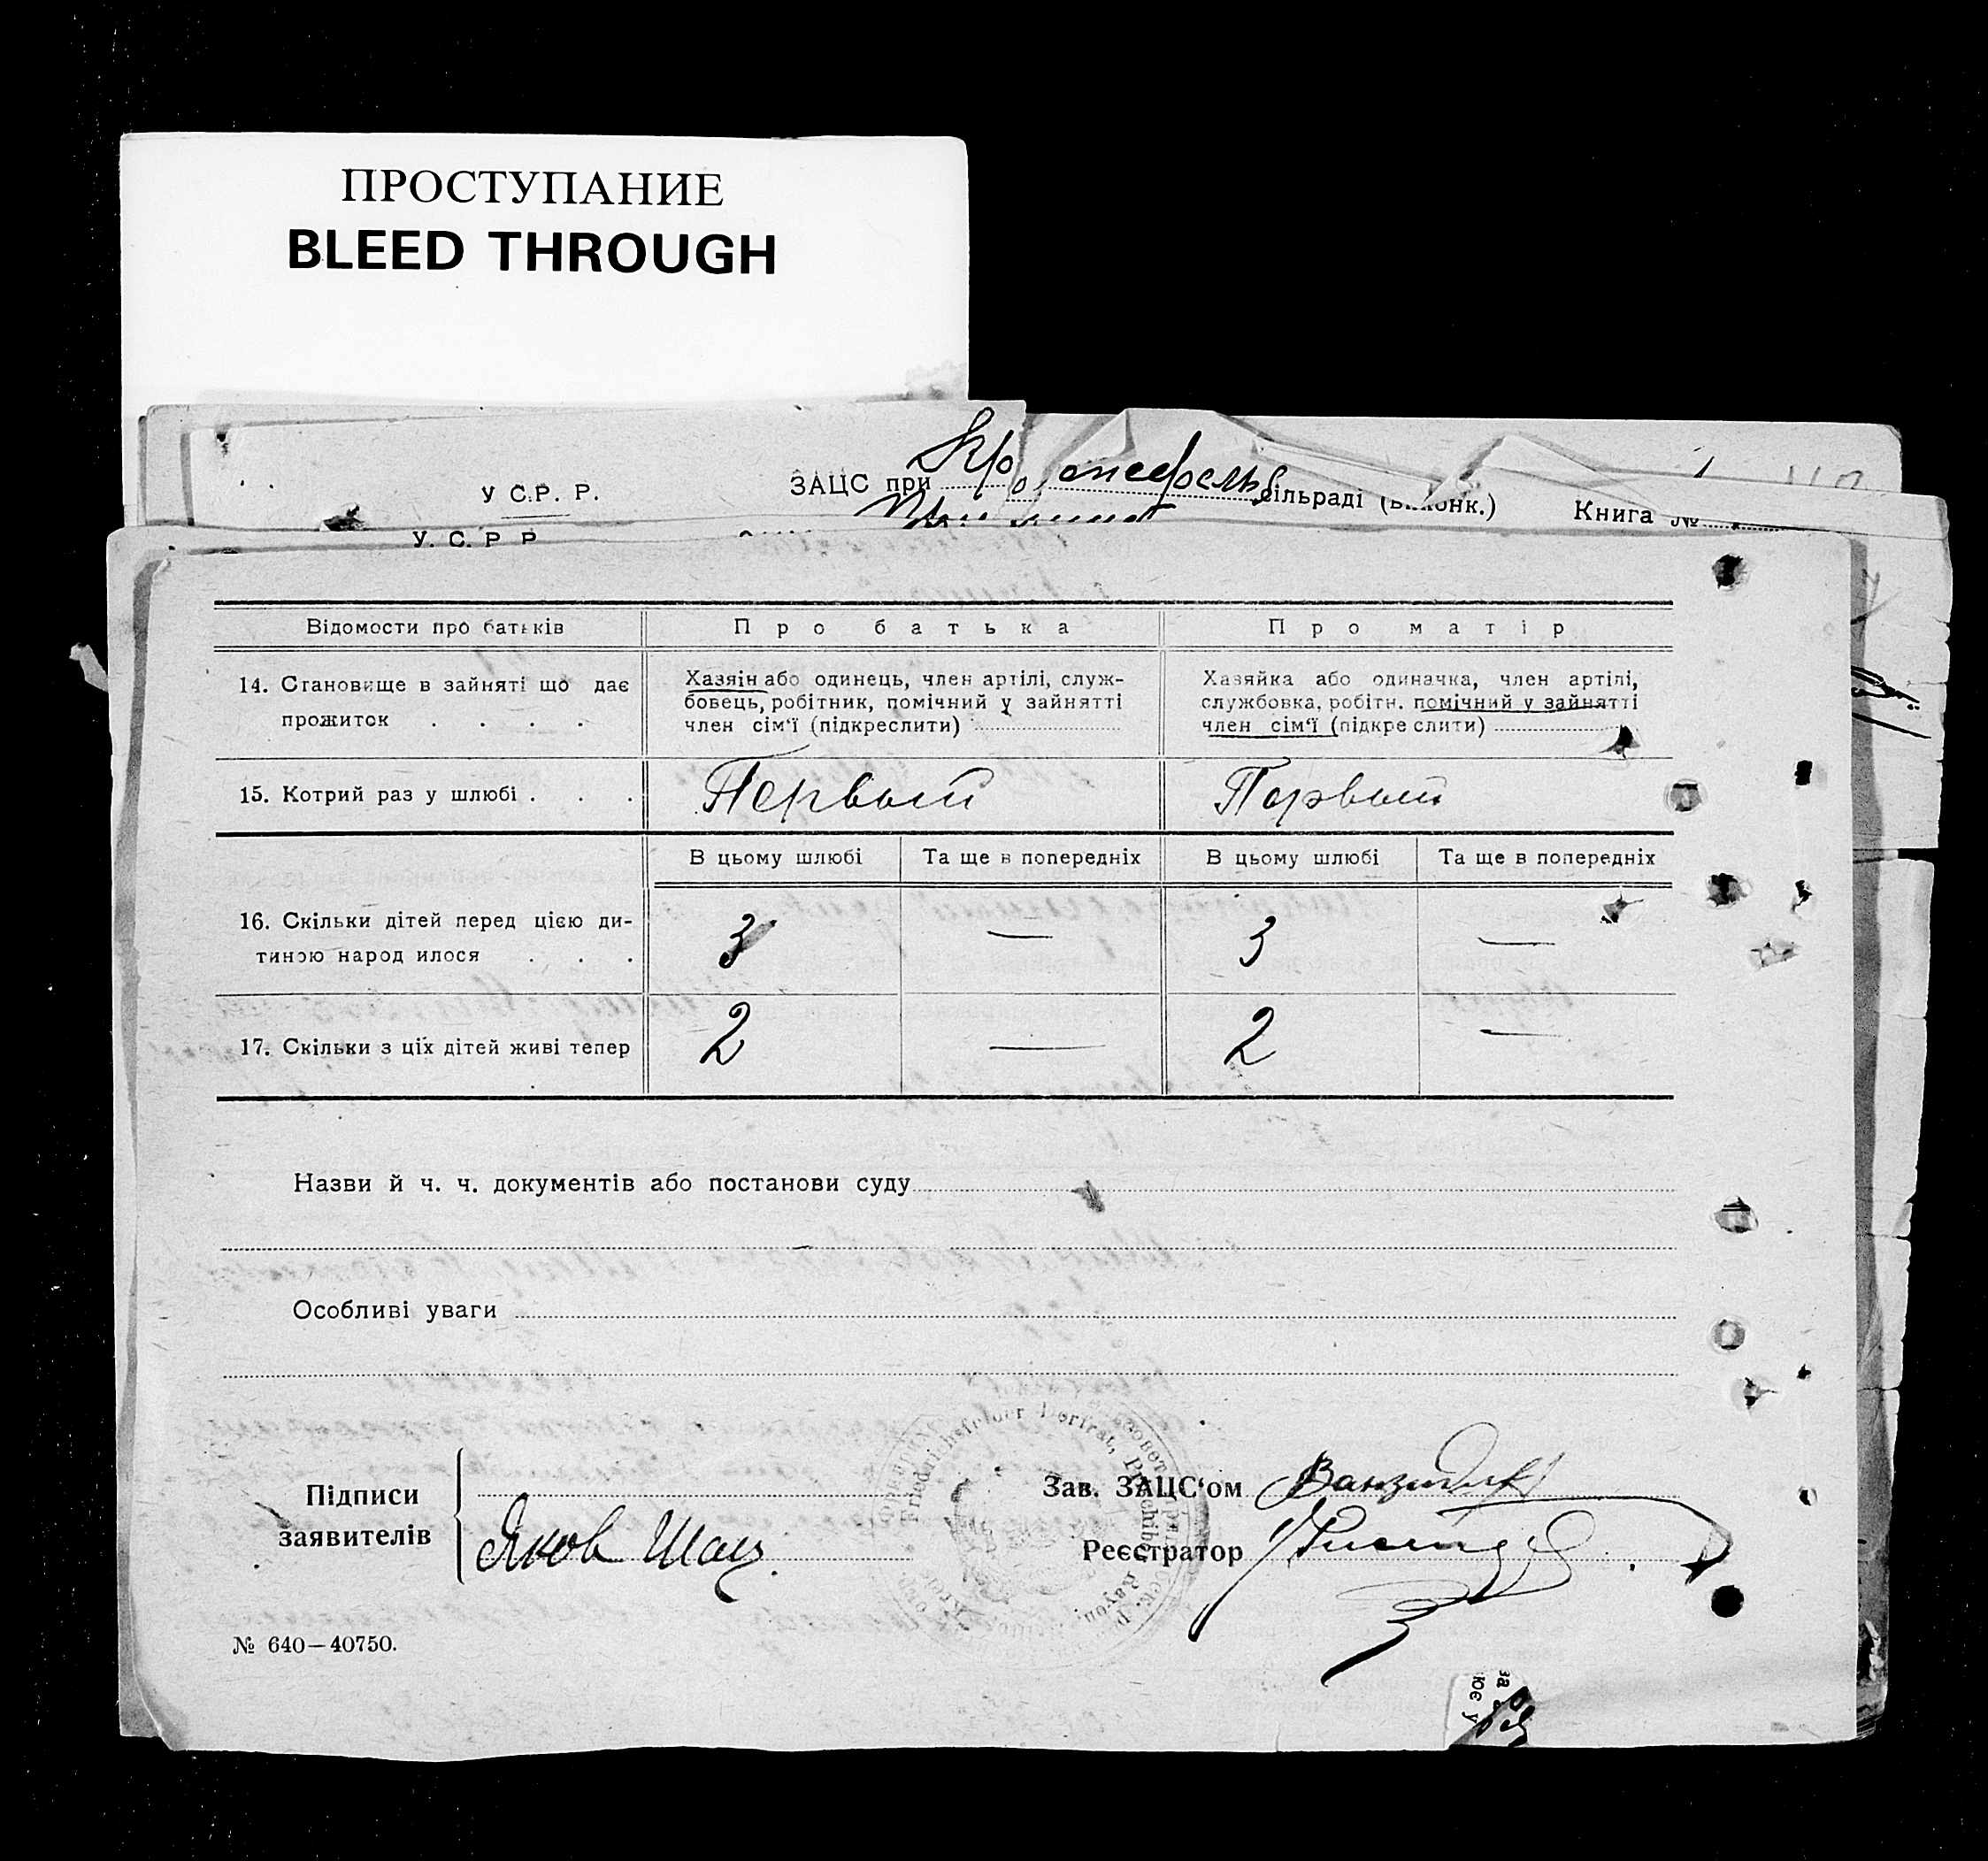 ПРОСТУПАНИЕ
BLEED THROUGH
У С.Р. Р. ЗАЦС при сільраді Книга №
У. С. Р Р
Відомости про батьків Про батька Про матір
14. Становище в зайняті що дає
прожиток . . . .
Хазяін або одинець, член артілі, служ-
бовець, робітник, помічний у зайнятті
член сім'ї (підкреслити)
Хазяйка або одиначка, член артілі,
службовка, робітн. помічний у зайнятті
член сім'ї (підкреслити)
15. Котрий раз у шлюбі . . . Первый Первый
В цьому шлюбі Та ще в попередніх В цьому шлюбі Та ще в попередніх
16. Скільки дітей перед цією ди-
тиною народилося . . . 3 — 3 —
17. Скільки з ціх дітей живі тепер 2 — 2 —
Назви й ч. ч. документів або постанови суду
Особливі уваги
Friedrichsfelder Dorfrat,
Rayon.
Підписи
заявителів
Яков Шац.
Зав. ЗАЦС'ом
Реєстратор
№ 640—40750.
за
ює у